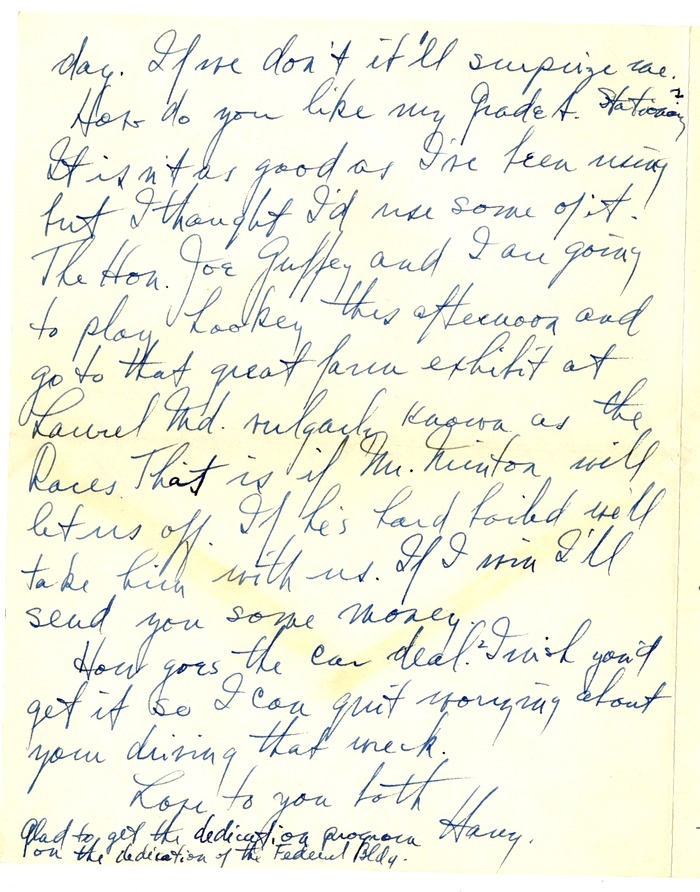 day. If we don't it'll surprize me.
How do you like my Grade A. Stationery?
It isn't as good as I've been using
but I thought I'd use some of it.
The Hon. Joe Guffey and I are going
to play hookey this afternoon and
go to that great farm exhibit at
Laurel Md. vulgarly known as the
Races. That is if Mr. Minton will
let us off. If he's hard boiled we'll
take him with us. If I win I'll
send you some money.
How goes the car deal? I wish you'd
get it so I can quit worrying about
your driving that wreck.
Love to you both
Harry.
Glad to get the dedication program
on the dedication of the Federal Bldg.